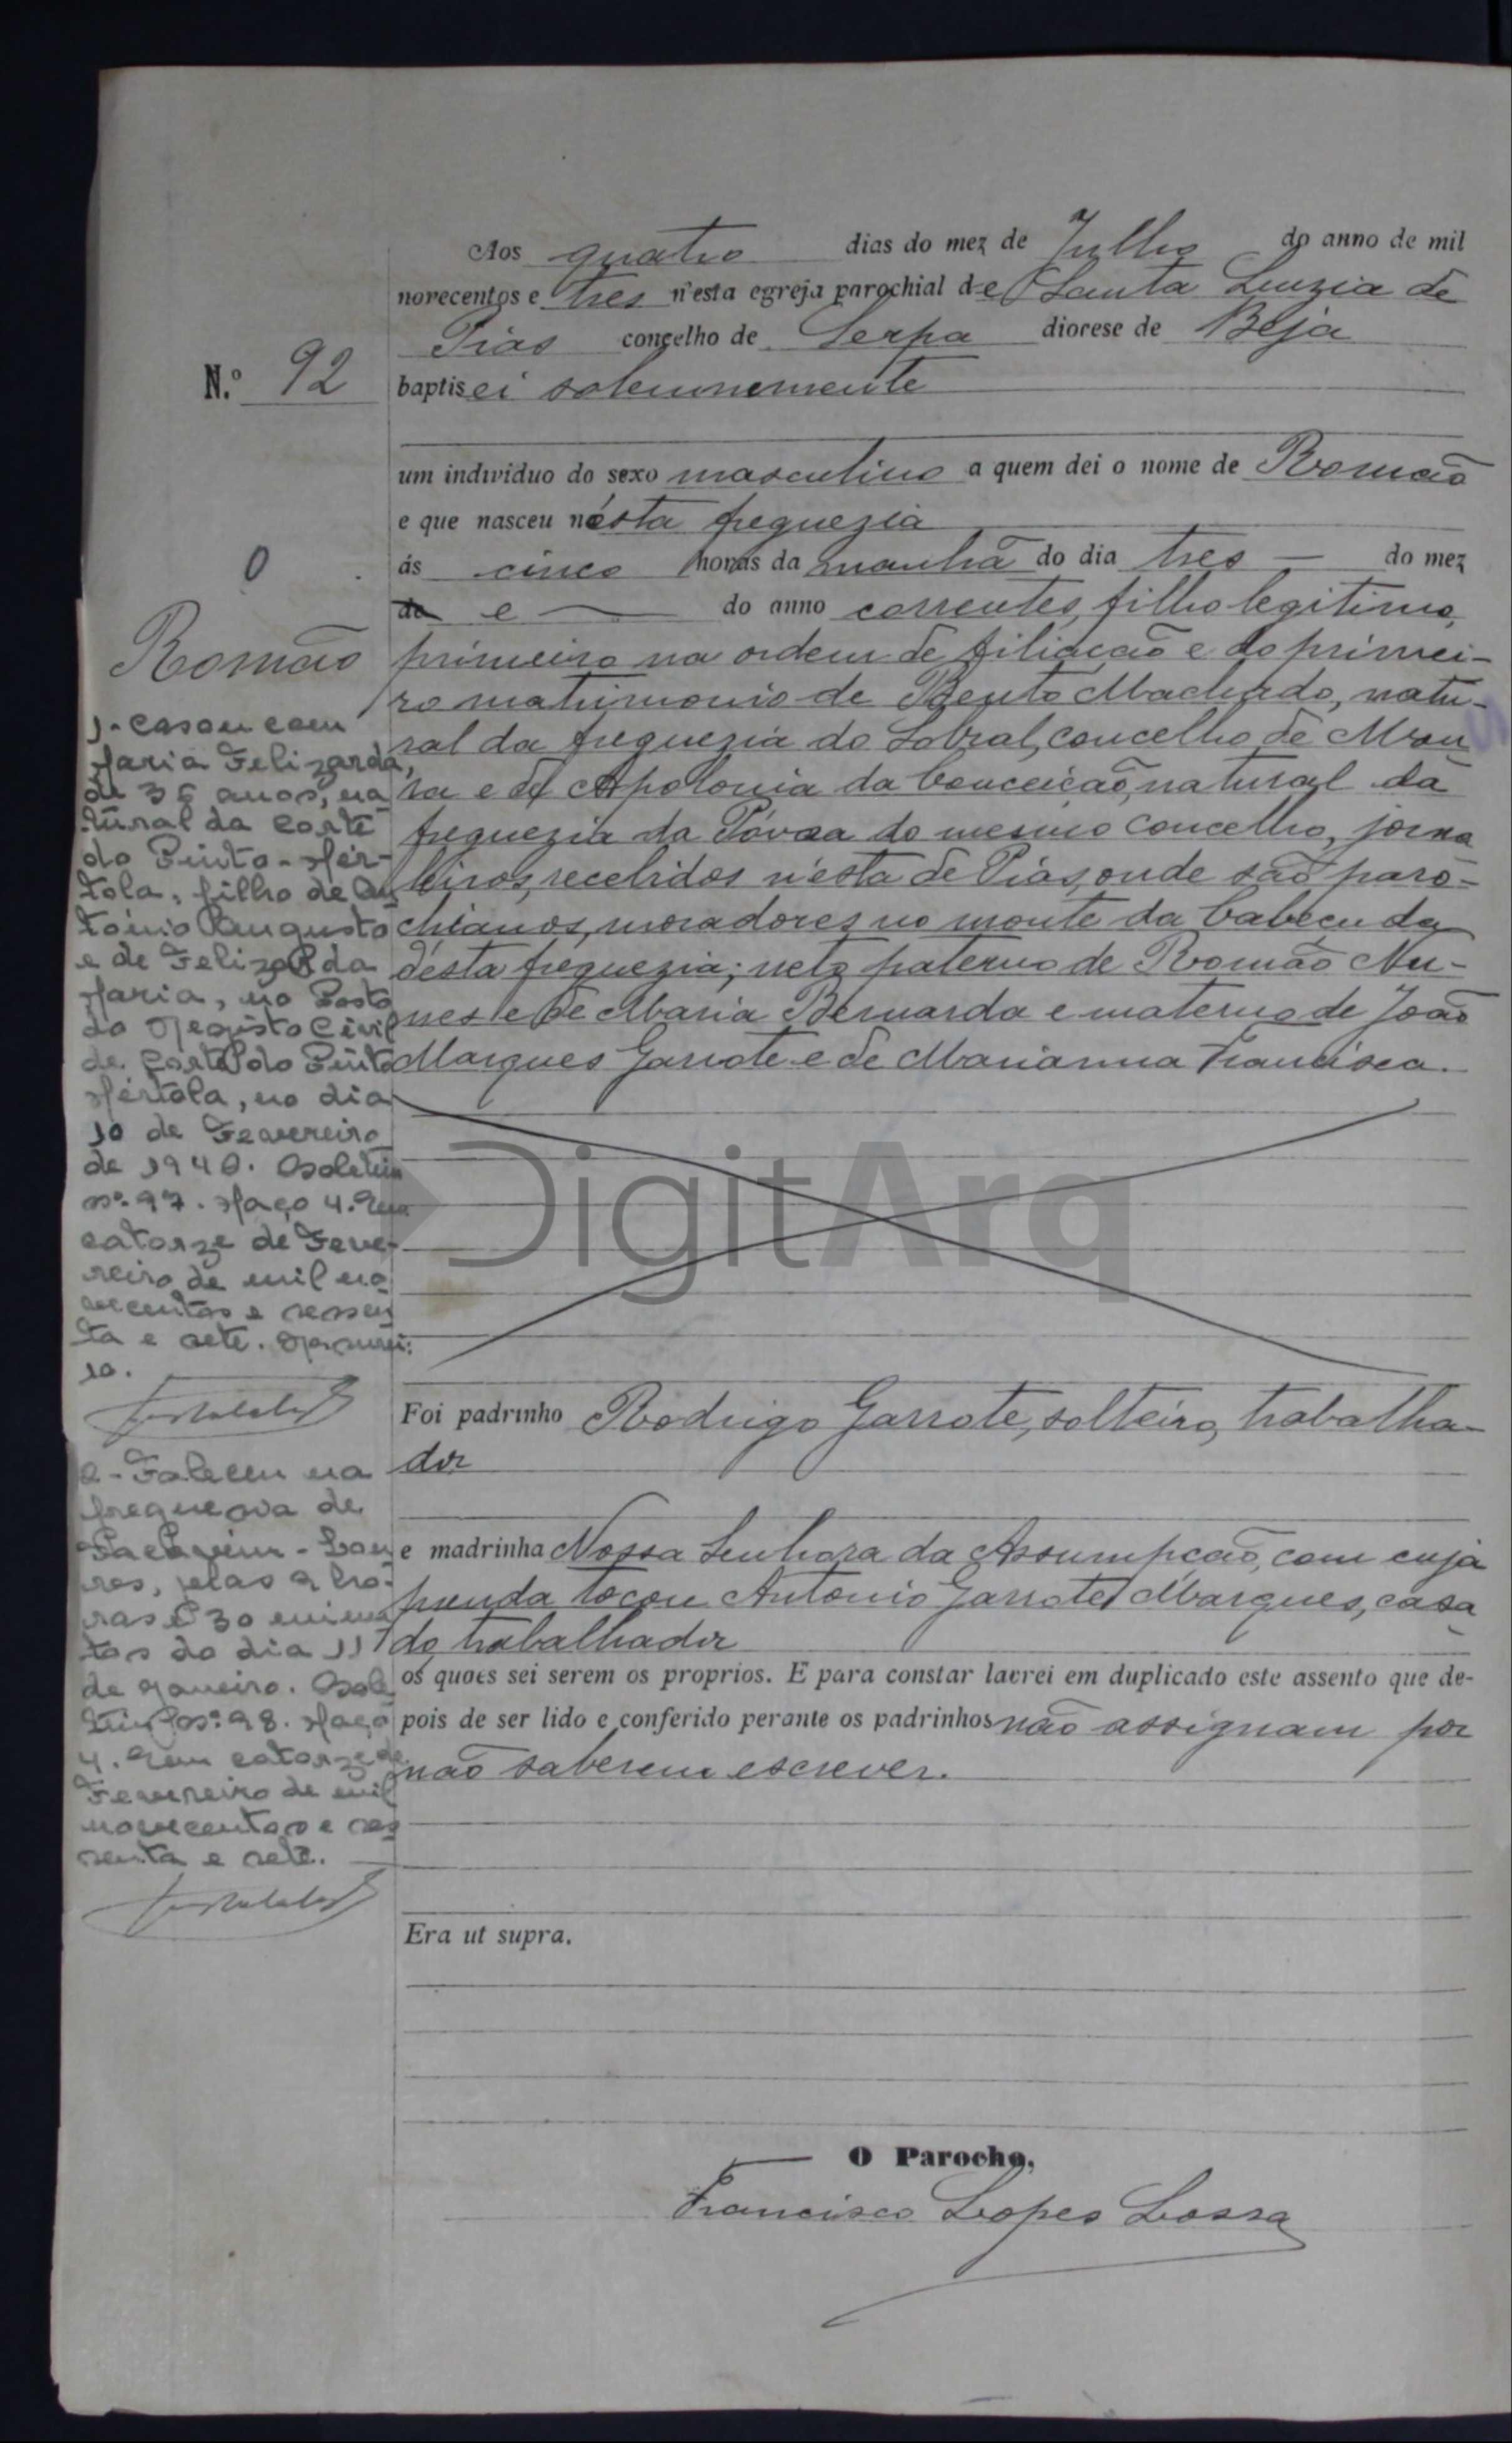 Aos quatro dias do mez de Julho do anno de mil
novecentos e tres n'esta egreja parochial de Santa Luzia de
Pias concelho de Serpa diocese de Beja
N.º 92
baptisei solemnemente
um individuo do sexo masculino a quem dei o nome de Romão
e que nasceu nésta freguezia
ás cinco horas da manhã do dia tres — do mez
de e — do anno correntes, filho legitimo,
primeiro na ordem de filiação e do primei-
ro matrimonio de Bento Machado, natu-
ral da freguezia do Sobral, concelho de Mou
ra e de Apolonia da Conceição, natural da
freguezia da Póvoa do mesmo concelho, jorna
leiros, recebidos n'ésta de Pias, onde são paro-
chianos, moradores no monte da Cabeçuda
d'ésta freguezia; neto paterno de Romão Nu-
nes e de Maria Bernarda e materno de João
Marques Garrote e de Marianna Francisca.
Foi padrinho Rodrigo Garrote, solteiro, trabalha-
dor
e madrinha Nossa Senhora da Assumpção, com cuja
prenda tocou Antonio Garrote Marques, casa
do, trabalhador
os quaes sei serem os proprios. E para constar lavrei em duplicado este assento que de-
pois de ser lido e conferido perante os padrinhos não assignam por
não saberem escrever.
Era ut supra.
O Parocho,
Francisco Lopes Lossa
0
Romão
1- Casou com
Maria Felizarda,
de 36 anos, na
tural da Corte
do Pinto - Mér-
tola, filho de An
tónio Augusto
e de Felizarda
Maria, no Posto
do Registo Civil
de Corte do Pinto
Mértola, no dia
10 de Fevereiro
de 1940. Boletim
nº. 97. Maço 4. Em
catorze de Feve-
reiro de mil no
vecentos e sessen
ta e sete.
2- Faleceu na
freguesia de
Sacavém - Lou
res, pelas 2 ho-
ras e 30 minu
tos do dia 11
de Janeiro. Bole
tim nº. 98. Maço
4. Em catorze de
Fevereiro de mil
novecentos e ses
senta e sete.
DigitArq